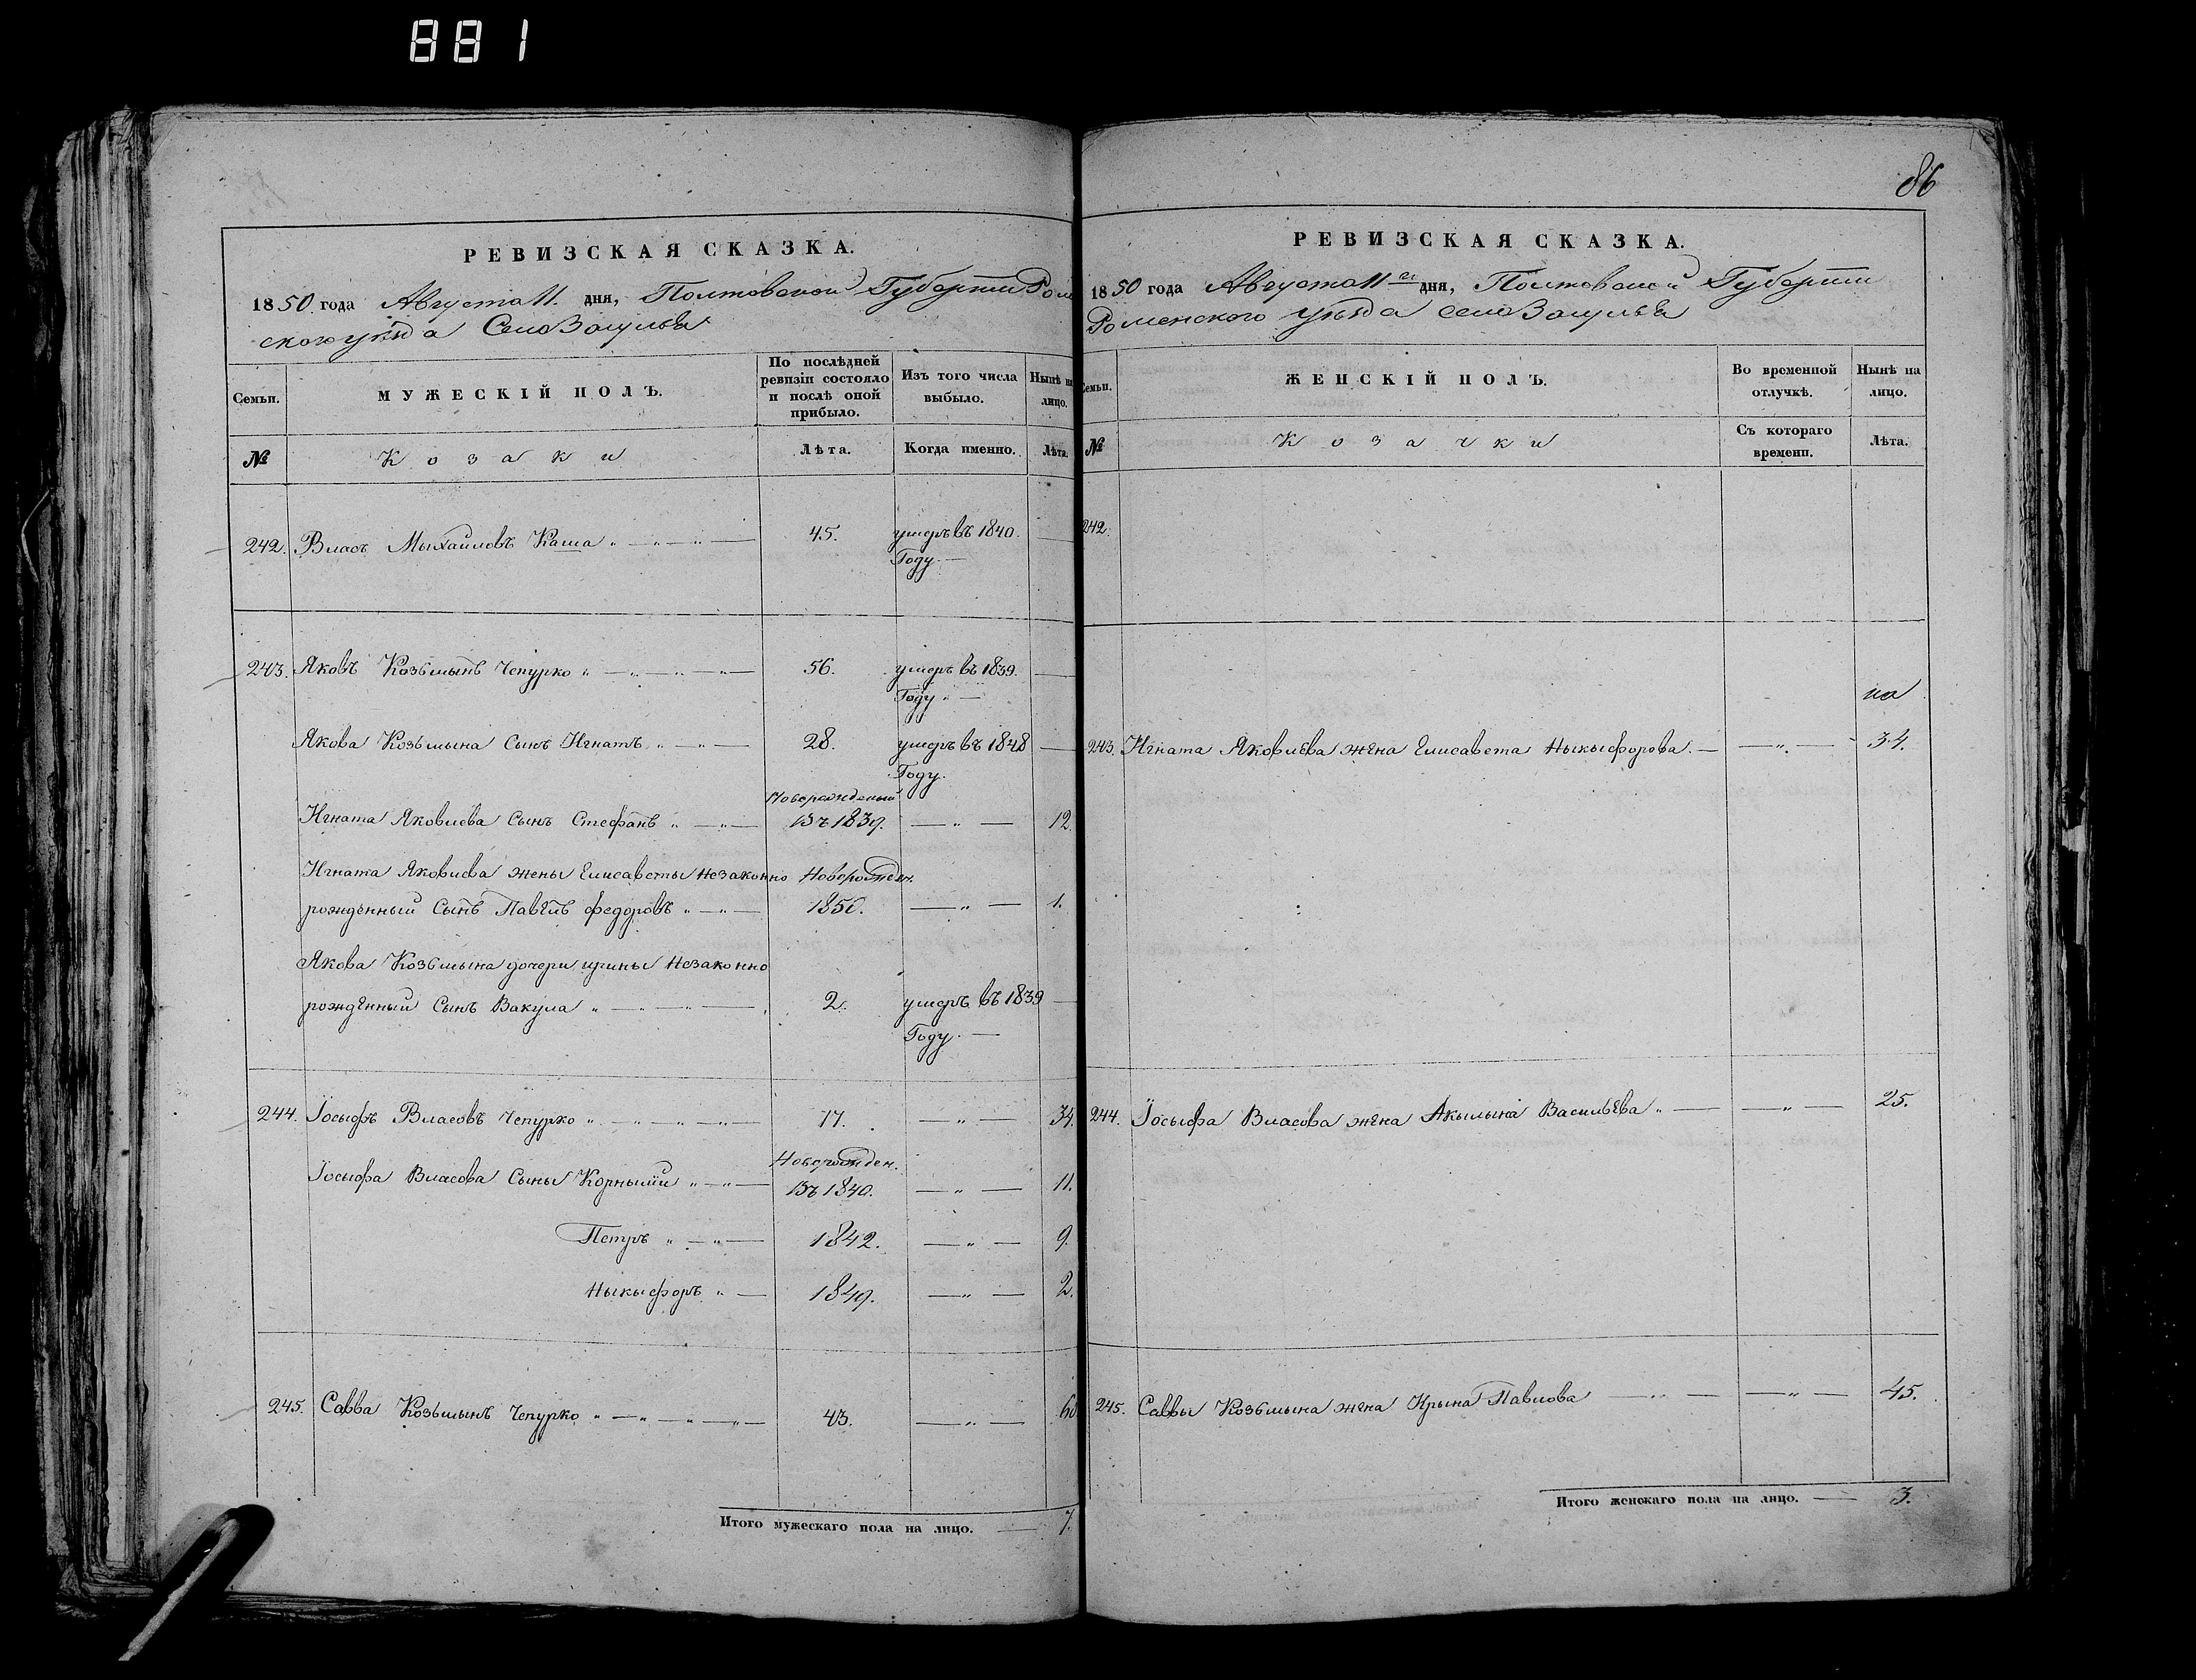 881
86
РЕВИЗСКАЯ СКАЗКА.
1850 года Августа 11. дня, Полтовской Губерніи Ром
ского уѣзда Село Засулья
Семьи. МУЖЕСКІЙ ПОЛЪ. По послѣдней ревизіи состояло и послѣ оной прибыло. Изъ того числа выбыло. Нынѣ на лицо.
№ Козаки Лѣта. Когда именно. Лѣта.
242. Власъ Мыхайловъ Каша 45. умеръ въ 1840.
Году
243. Яковъ Козьмынъ Чепурко 56. умеръ въ 1839.
Году
Якова Козьмына Сынъ Игнатъ 28. умеръ въ 1848
Году.
Новорожденый
Игната Яковлева Сынъ Стефанъ въ 1839. 12.
Игната Яковлева жены Елисаветы незаконно Новорожден.
рожденный Сынъ Павелъ Федоровъ 1850. 1.
Якова Козьмына дочери ирины незаконно
рожденный Сынъ Вакула 2. умеръ въ 1839
Году.
244. Іосыфъ Власовъ Чепурко 17. 34.
Новорожден.
Іосыфа Власова Сыны Корнылій въ 1840. 11.
Петръ 1842. 9.
Ныкыфоръ 1849. 2.
245. Савва Козьмынъ Чепурко 43. 60
Итого мужескаго пола на лицо. 7.
РЕВИЗСКАЯ СКАЗКА.
1850 года Августа 11го дня, Полтовской Губерніи
Роменского уѣзда село Засулья
Семьи. ЖЕНСКІЙ ПОЛЪ. Во временной отлучкѣ. Нынѣ на лицо.
№ Козачки Съ котораго времени. Лѣта.
242.
243. Игната Яковлева жена Елисавета Ныкыфорова 34.
244. Іосыфа Власова жена Акылына Васильева 25.
245. Саввы Козьмына жена Ирына Павлова 45.
Итого женскаго пола на лицо. 3.